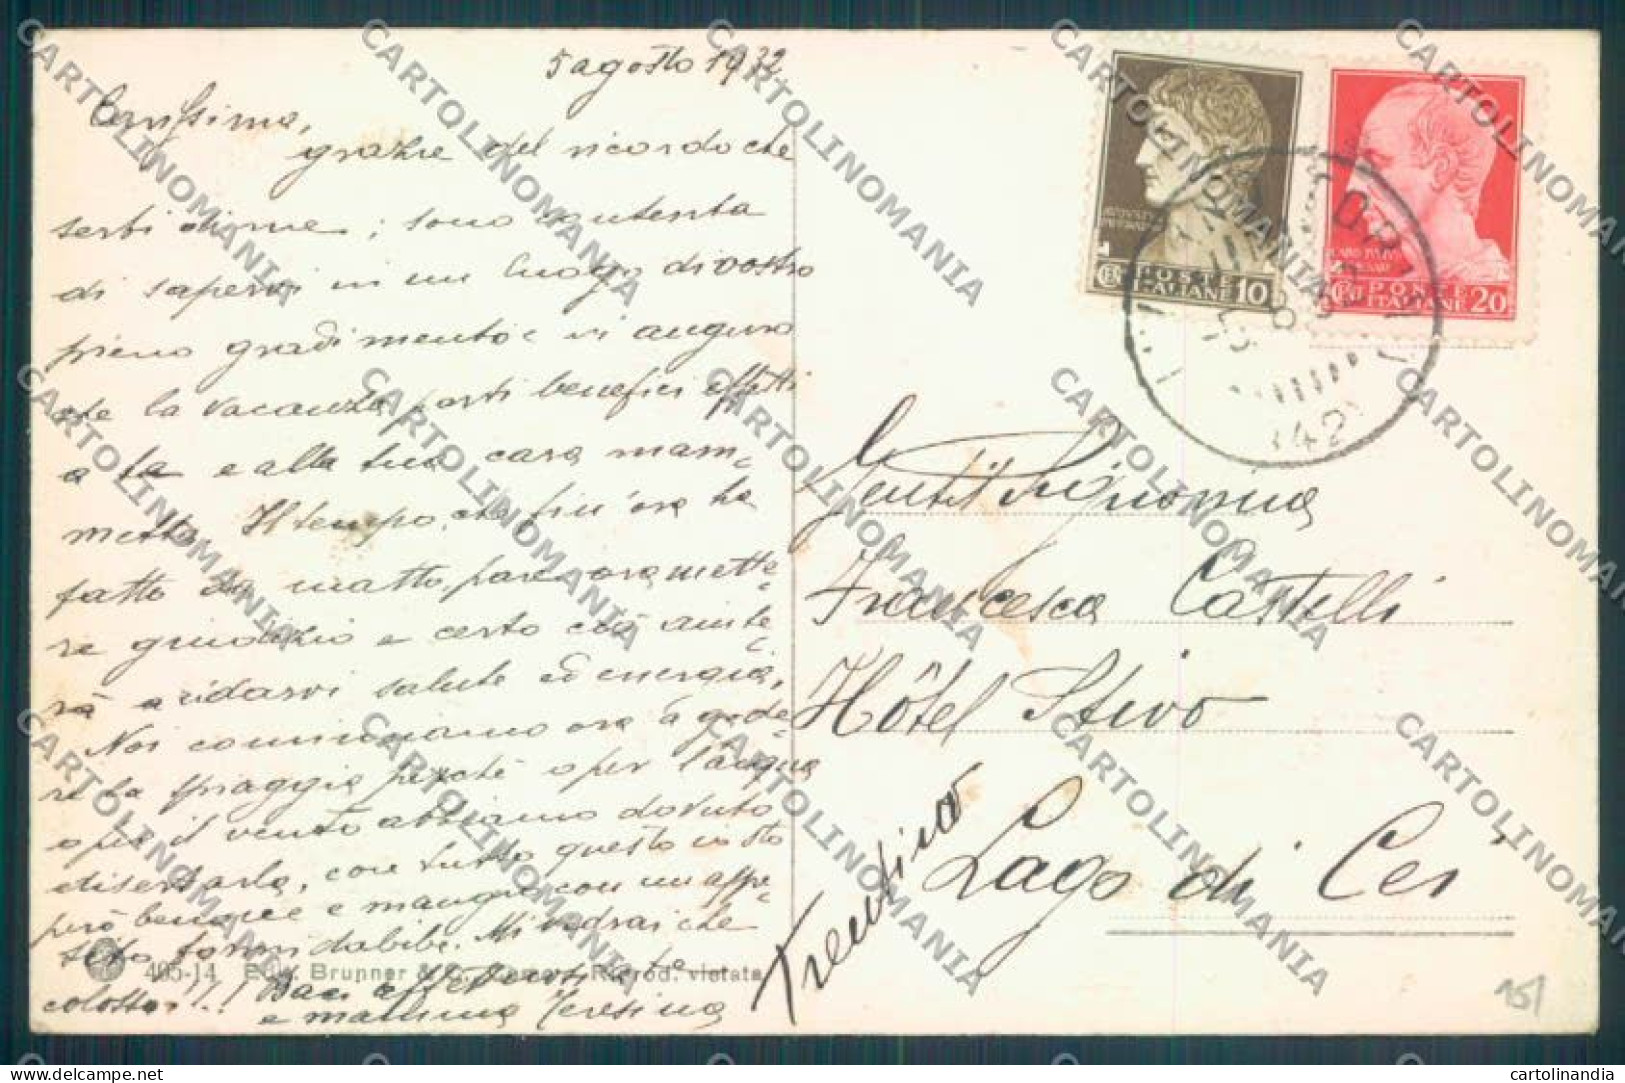 5 agosto 1932
Carissima,
grazie del ricordo che
serbi di me; sono contenta
di sapervi in un luogo di vostro
pieno gradimento e vi auguro
che la vacanza porti benefici effetti
a te e alla tua cara mam-
metta. Il tempo, che fin'ora ha
fatto da matto, pare ora mette-
re giudizio e certo ciò aiute-
rà a ridarvi salute ed energia.
Noi cominciamo ora a gode-
re la spiaggia perché o per l'acqua
o per il vento abbiamo dovuto
disertarla, con tutto questo io sto
però benone e mangio con un appe-
tito formidabile. Mi vedrai che
colosso!!! Baci affettuosi a te
e mamma Teresina
405-14 Ediz. Brunner & C., Como - Riprod. vietata
POSTE ITALIANE 10
POSTE ITALIANE 20
42
Gentil Signorina
Francesca Castelli
Hôtel Stivo
Lago di Cei
Trentino
15/
CARTOLINOMANIA
https://www.delcampe.net
cartolinandia